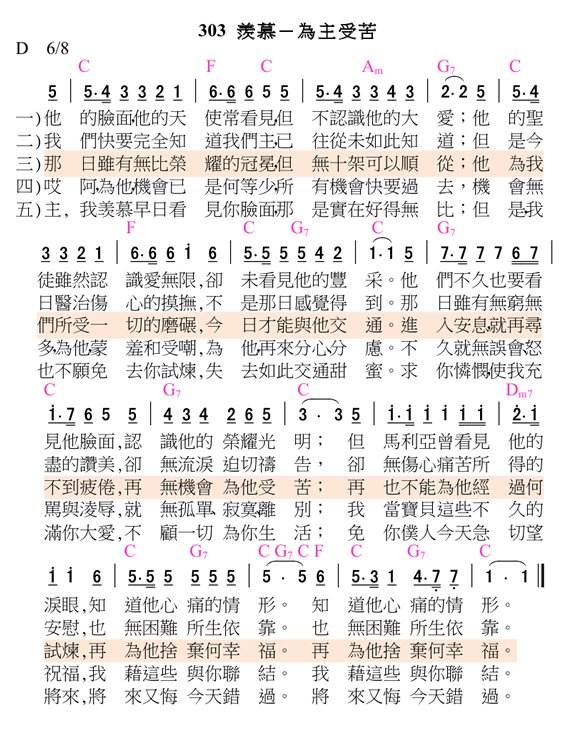 303 羨慕－為主受苦
D 6/8
C F C Am G7 C
5 | 5·4 3 3 2 1 | 6·6 6 5 5 | 5·4 3 3 4 3 | 2·2 5 | 5·4
一)他 的臉面,他的天 使常看見,但 不認識他的大 愛；他 的聖
二)我 們快要完全知 道我們主,已 往從未如此知 道；但 是今
三)那 日雖有無比榮 耀的冠冕,但 無十架可以順 從；他 為我
四)哎 阿,為他,機會已 是何等少,所 有機會快要過 去，機 會無
五)主, 我羨慕早日看 見你臉面,那 是實在好得無 比；但 是,我
F C G7 C G7
3 3 2 1 | 6·6 6 i 6 | 5·5 5 5 4 2 | 1·1 5 | 7·7 7 7 6 7
徒雖然認 識愛無限,卻 未看見他的豐 采。他 們不久也要看
日醫治傷 心的撫摸,不 是那日感覺得 到。那 日雖有無窮無
們所受一 切的磨碾,今 日才能與他交 通。進 入安息,就再尋
多,為他,蒙 羞和受嘲,為 他,再來分心,分 慮。不 久就無誤會,怒
也不願免 去你試煉,失 去如此交通甜 蜜。求 你憐憫,使我充
C G7 C Dm7
i·7 6 5 5 | 4 3 4 2 6 5 | 3 · 3 5 | i·i i i i i | 2·i
見他臉面,認 識他的 榮耀光 明； 但 馬利亞曾看見 他的
盡的讚美,卻 無流淚 迫切禱 告， 卻 無傷心痛苦所 得的
不到疲倦,再 無機會 為他受 苦； 再 也不能為他經 過何
罵與淩辱,就 無孤單、寂寞,離 別； 我 當寶貝這些不 久的
滿你大愛,不 顧一切 為你生 活； 免 你僕人今天急 切望
C G7 C G7 C F C G7 C
i i 6 | 5·5 5 5 5 5 | 5 · 5 6 | 5·3 1 4·7 7 | 1 · 1 ‖
淚眼,知 道他心 痛的情 形。 知 道他心 痛的情 形。
安慰,也 無困難 所生依 靠。 也 無困難 所生依 靠。
試煉,再 為他捨 棄何幸 福。 再 為他捨 棄何幸 福。
祝福,我 藉這些 與你聯 結。 我 藉這些 與你聯 結。
將來,將 來又悔 今天錯 過。 將 來又悔 今天錯 過。